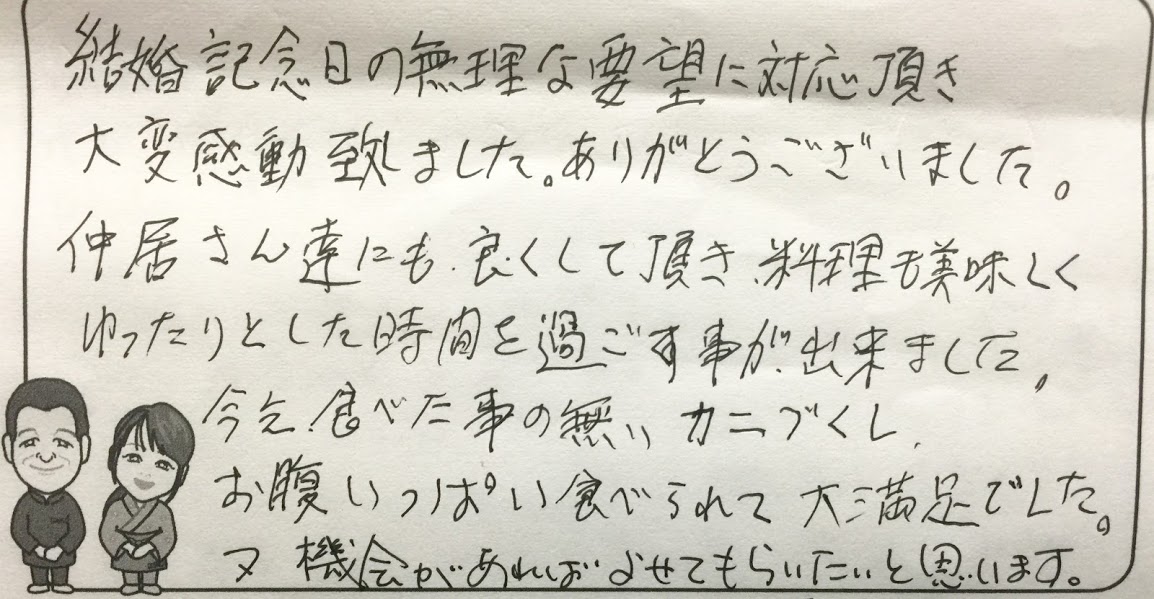 結婚記念日の無理な要望に対応頂き
大変感動致しました。ありがとうございました。
仲居さん達にも良くして頂き、料理も美味しく
ゆったりとした時間を過ごす事が出来ました。
今迄食べた事の無いカニづくし、
お腹いっぱい食べられて大満足でした。
又機会があればよせてもらいたいと思います。